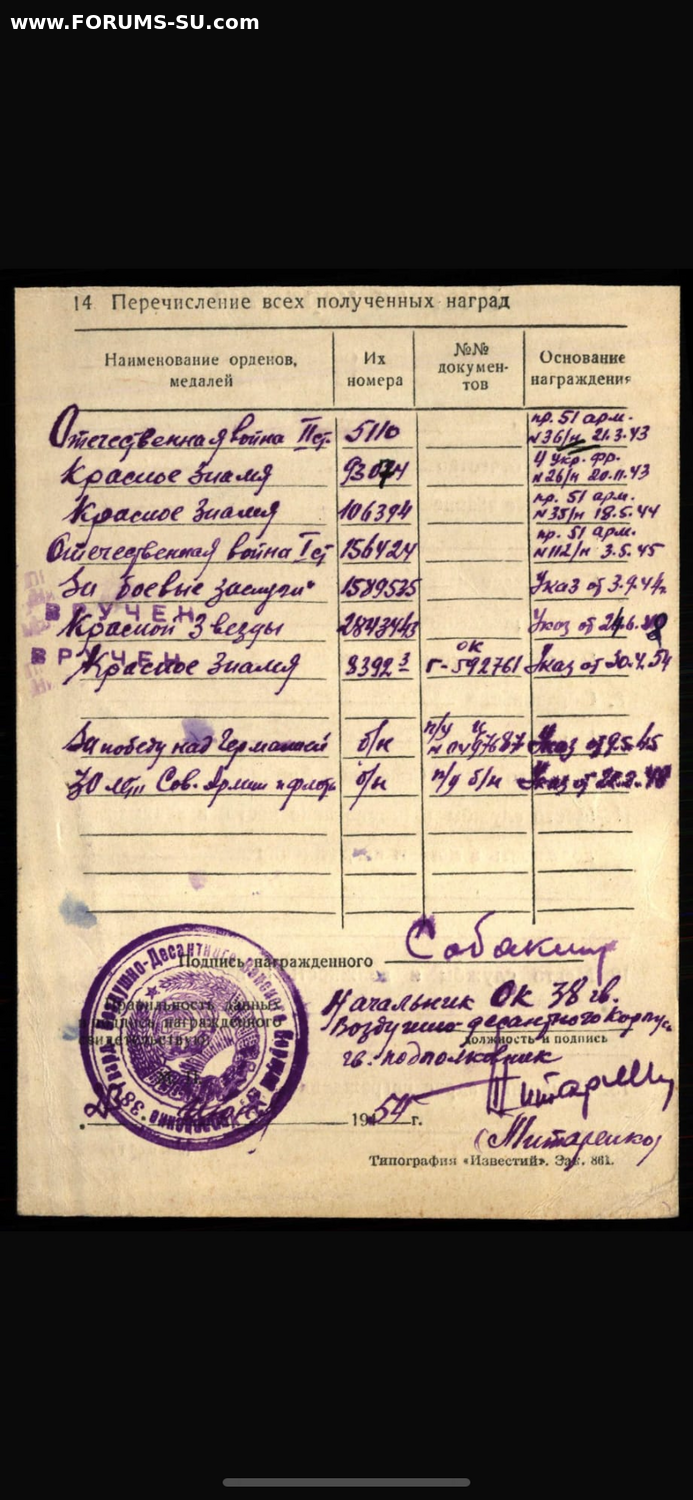 www.FORUMS-SU.com
14 Перечисление всех полученных наград
Наименование орденов, медалей
Их номера
№№ докумен-тов
Основание награждения
Отечественная война IIст. 5110 пр. 51 арм. №36/н 21.3.43
Красное Знамя 93074 4 Укр. фр. №26/н 20.11.43
Красное Знамя 106394 пр. 51 арм. №35/н 18.5.44
Отечественная война I ст 156424 пр. 51 арм. №112/н 3.5.45
За боевые заслуги" 1589535 Указ от 3.9.44г.
ВРУЧЕН
Красной Звезды 2843443 Указ от
ВРУЧЕН
Красное Знамя 8392 ОК Г-592761 Указ от 30.4.54
За победу над Германией б/н п/у Указ от 9.5.45
30 лет Сов. Армии и флота б/н п/у б/н Указ от 22.2.48
Подпись награжденного Собакин
Правильность данных
и подпись награжденного
свидетельствую
Начальник ОК 38 гв.
Воздушно-десантного Корпуса
должность и подпись
гв. подполковник
1954 г.
(Митаренко)
Типография «Известий». Зак. 861.